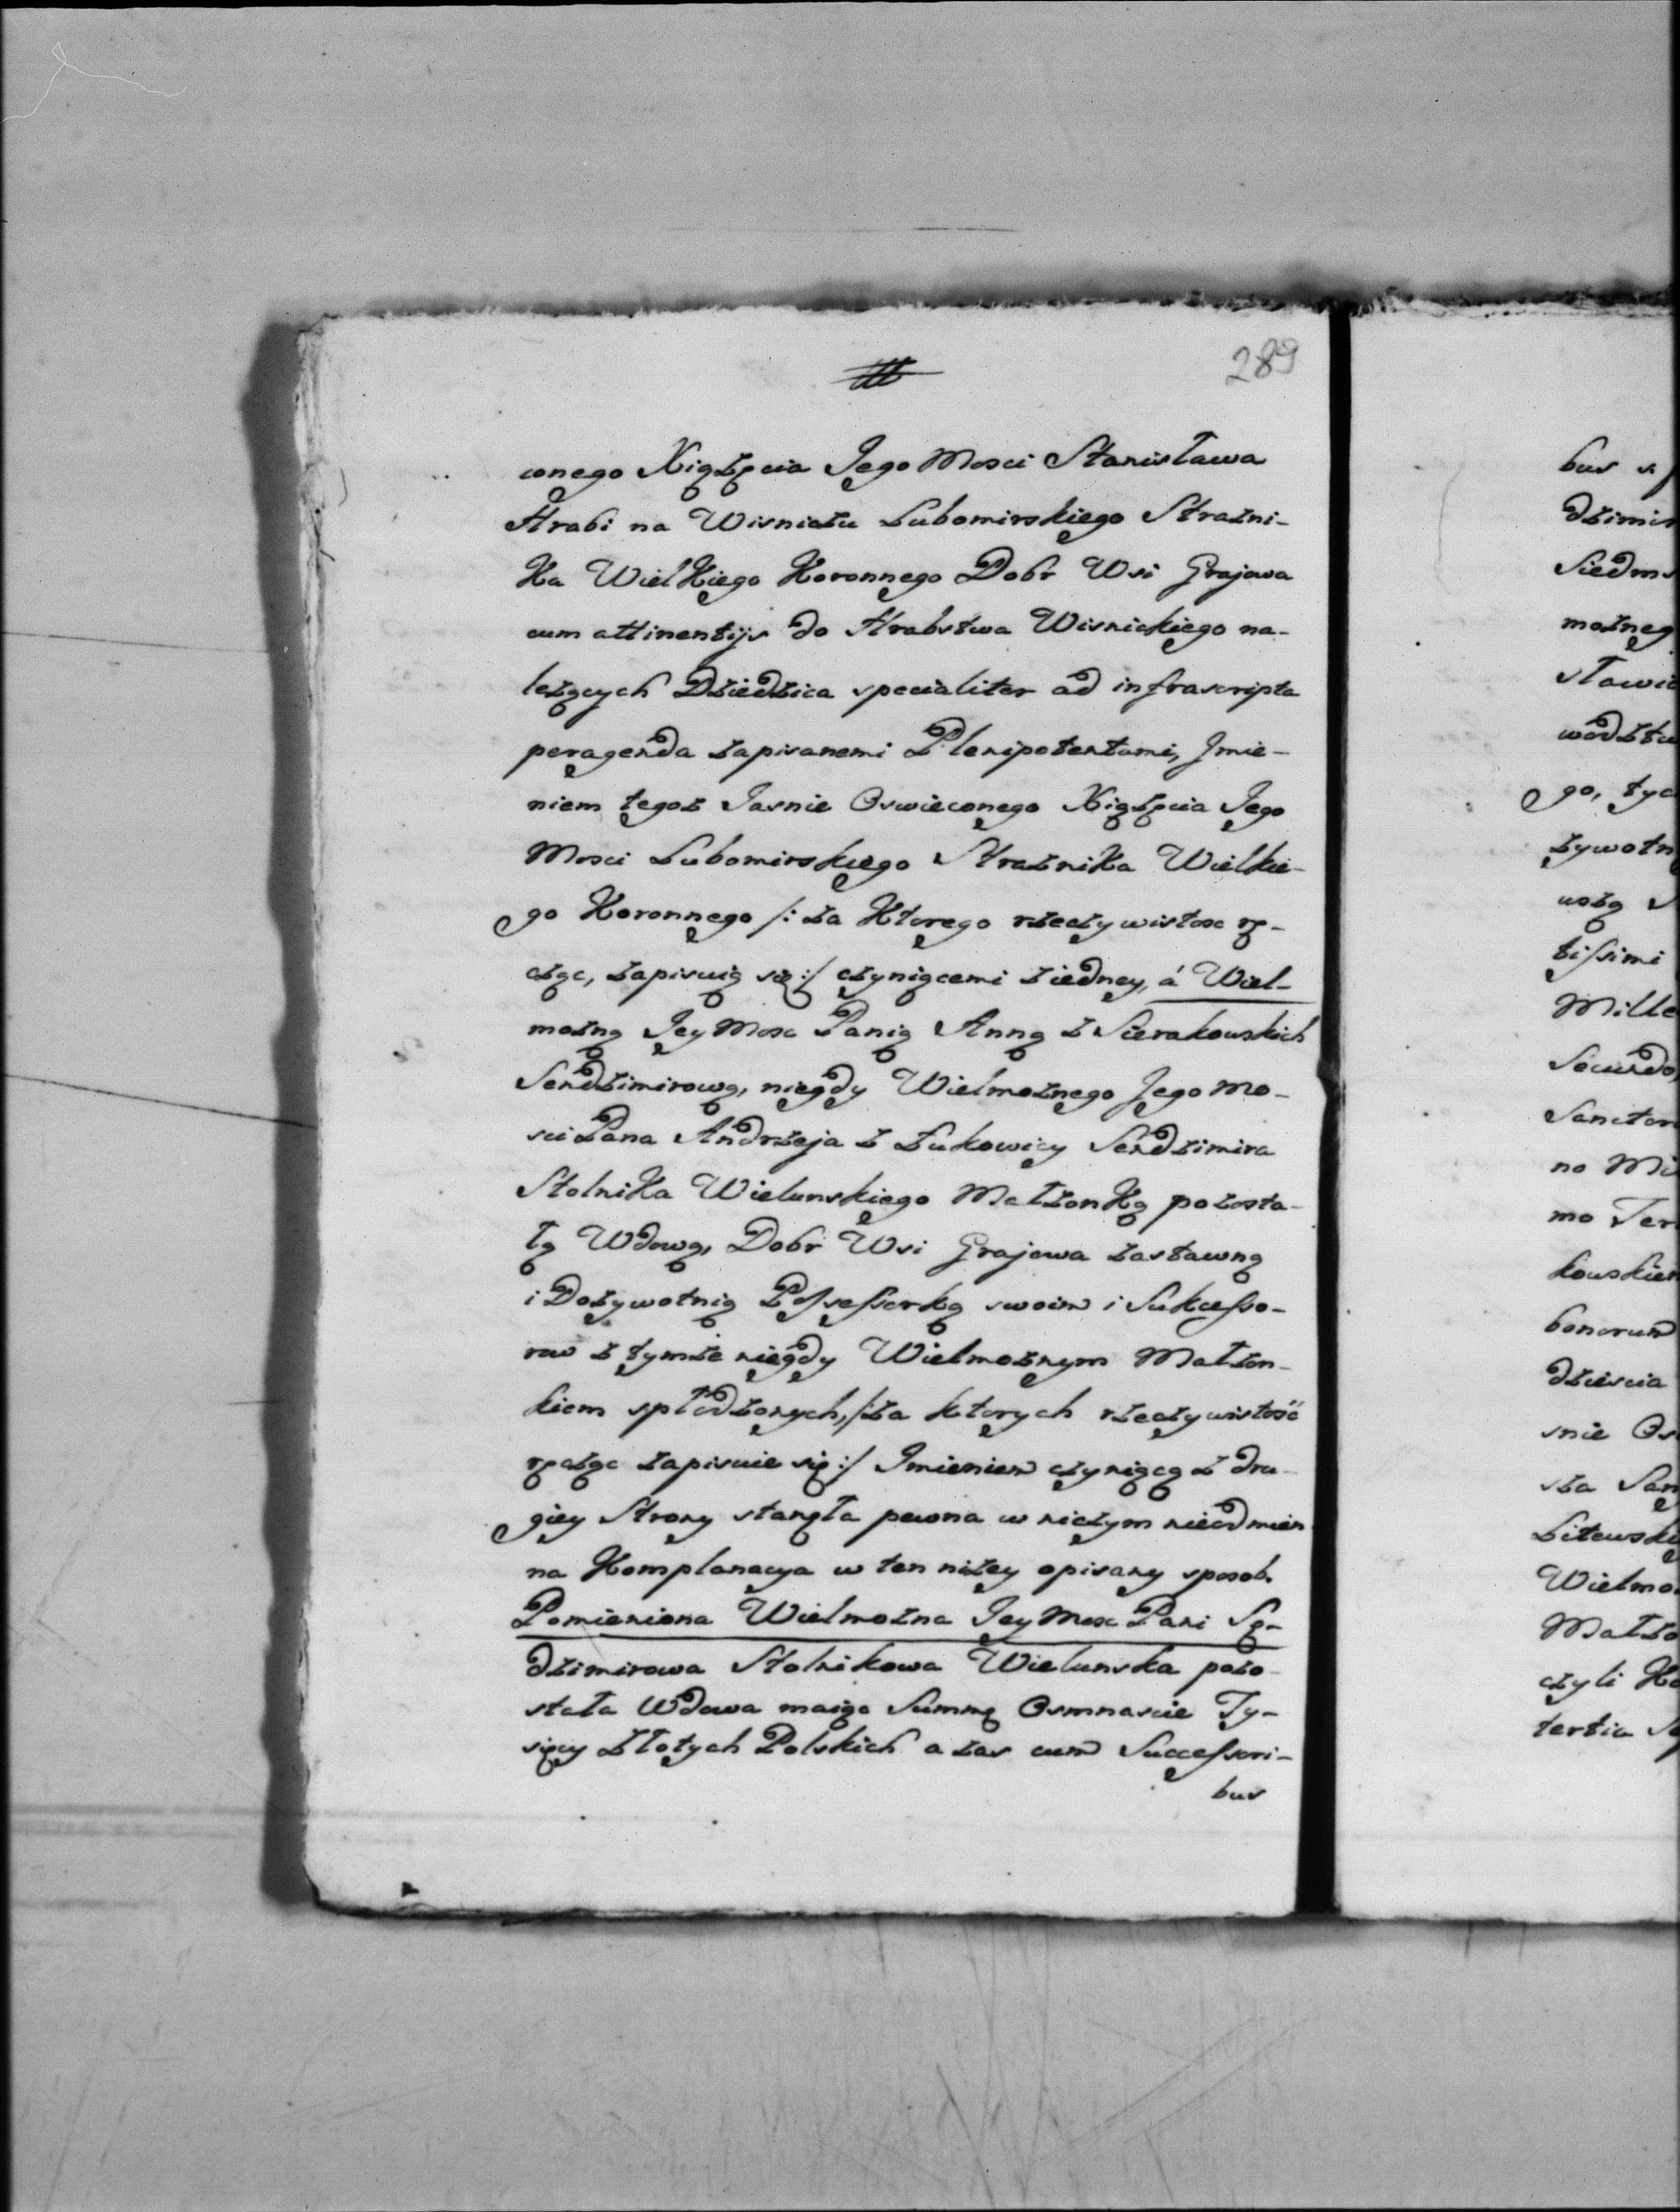 289
conego Xiążęcia Jego Mosci Stanisława
Hrabi na Wisniczu Lubomirskiego Strażni-
Ka WielKiego Koronnego Dobr Wsi Grajowa
cum attinentijs do Hrabstwa Wisnickiego na-
leżących Dziedzica specialiter ad infrascripta
peragenda zapisanemi Plenipotentami, Jmie-
niem tegoż Jasnie Oswieconego Xiążęcia Jego
Mosci Lubomirskiego StrażniKa Wielkie-
go Koronnego /: za Ktorego rzeczywistosc rę-
cząc, zapisuią się :/ czyniącemi z iedney, á Wiel-
możną Jey Mosc Panią Anną z Sierakowskich
Sendzimirową, niegdy Wielmożnego Jego Mo-
sci Pana Andrzeja z Łukowicy Sendzimira
StolniKa Wielunskiego MałżonKą pozosta-
łą Wdową, Dobr Wsi Grajowa zastawną
i Dożywotnią Possessorką swoim i Sukcesso-
row z tymże niegdy Wielmożnym Małżon-
kiem spłodzonych, /: za ktorych rzeczywistość
ręcząc zapisuie się :/ Jmieniem czyniącą z dru-
giey Strony stanęła pewna w niczym nieodmien
na Komplanacya w ten niżey opisany sposob.
Pomieniona Wielmożna Jey Mosc Pani Sę-
dzimirowa Stolnikowa Wielunska pozo-
stała Wdowa maiąc Summę Osmnascie Ty-
sięcy Złotych Polskich a zas cum Successori-
bus
bus
dzimir
Siedm
możneg
sławic
wodztw
go, tyc
żywotn
wszą
tissimi
Mille
Secundo
Sanctor
no Mi
mo Ter
kowskie
bonorum
dziescia
snie Os
sza San
Litewski
Wielmo
Małżo
czyli Ko
tertia